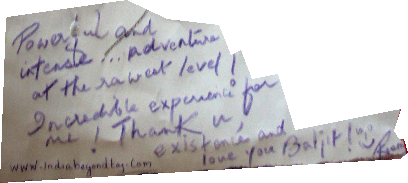 Powerful and
intense... adventure
at the rawest level!
Incredible experience for
me! Thank u
existence and
love you Baljit!
www.indiabeyondtag.com